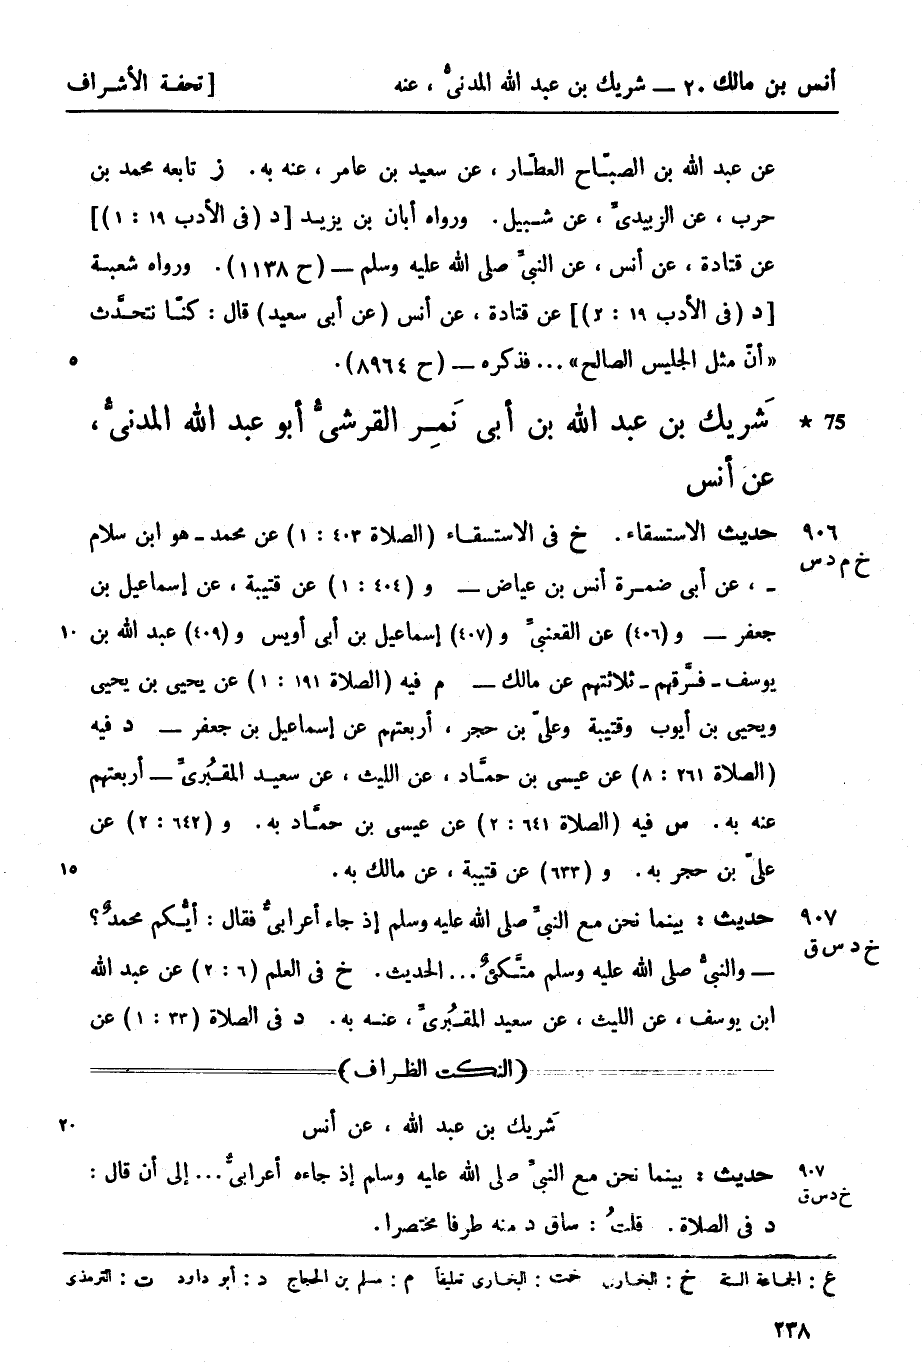 أنس بن مالك ٢٠ — شريك بن عبد الله المدنىّ ، عنه [ تحفة الأشراف
عن عبد الله بن الصبّاح العطّار ، عن سعيد بن عامر ، عنه به . ز تابعه محمد بن
حرب ، عن الزبيدىّ ، عن شبيل . ورواه أبان بن يزيد [د (فى الأدب ١٩ : ١)]
عن قتادة ، عن أنس ، عن النبىّ صلى الله عليه وسلم — (ح ١١٣٨) . ورواه شعبة
[د (فى الأدب ١٩ : ٢)] عن قتادة ، عن أنس (عن أبى سعيد) قال : كنّا نتحدّث
«أنّ مثل الجليس الصالح» ... فذكره — (ح ٨٩٦٤) . ٥
75 * شَريك بن عبد الله بن أبى نَمِر القرشىّ أبو عبد الله المدنىّ ،
عن أنس
٩٠٦ حديث الاستسقاء . خ فى الاستسقاء (الصلاة ٤٠٣ : ١) عن محمد - هو ابن سلام
خ م د س
- ، عن أبى ضمرة أنس بن عياض — و (٤٠٤ : ١) عن قتيبة ، عن إسماعيل بن
جعفر — و (٤٠٦) عن القعنبىّ و (٤٠٧) إسماعيل بن أبى أويس و (٤٠٩) عبد الله بن ١٠
يوسف - فرَّقهم - ثلاثتهم عن مالك — م فيه (الصلاة ١٩١ : ١) عن يحيى بن يحيى
ويحيى بن أيوب وقتيبة وعلىّ بن حجر ، أربعتهم عن إسماعيل بن جعفر — د فيه
(الصلاة ٢٦١ : ٨) عن عيسى بن حمَّاد ، عن الليث ، عن سعيد المقبُرىّ — أربعتهم
عنه به . س فيه (الصلاة ٦٤١ : ٢) عن عيسى بن حمَّاد به . و (٦٤٢ : ٢) عن
علىّ بن حجر به . و (٦٣٣) عن قتيبة ، عن مالك به . ١٥
٩٠٧ حديث : بينما نحن مع النبىّ صلى الله عليه وسلم إذ جاء أعرابىٌّ فقال : أيُّكم محمدٌ ؟
خ د س ق
— والنبىُّ صلى الله عليه وسلم متَّكئٌ ... الحديث . خ فى العلم (٦ : ٢) عن عبد الله
ابن يوسف ، عن الليث ، عن سعيد المقبُرىّ ، عنه به . د فى الصلاة (٣٣ : ١) عن
(النكت الظراف)
شَريك بن عبد الله ، عن أنس ٢٠
٩٠٧ حديث : بينما نحن مع النبىّ صلى الله عليه وسلم إذ جاءه أعرابىٌّ ... إلى أن قال :
خ د س ق
د فى الصلاة . قلتُ : ساق د منه طرفا مختصرا .
ع : الجماعة الستة خ : البخارى خت : البخارى تعليقاً م : مسلم بن الحجاج د : أبو داود ت : الترمذى
٢٣٨